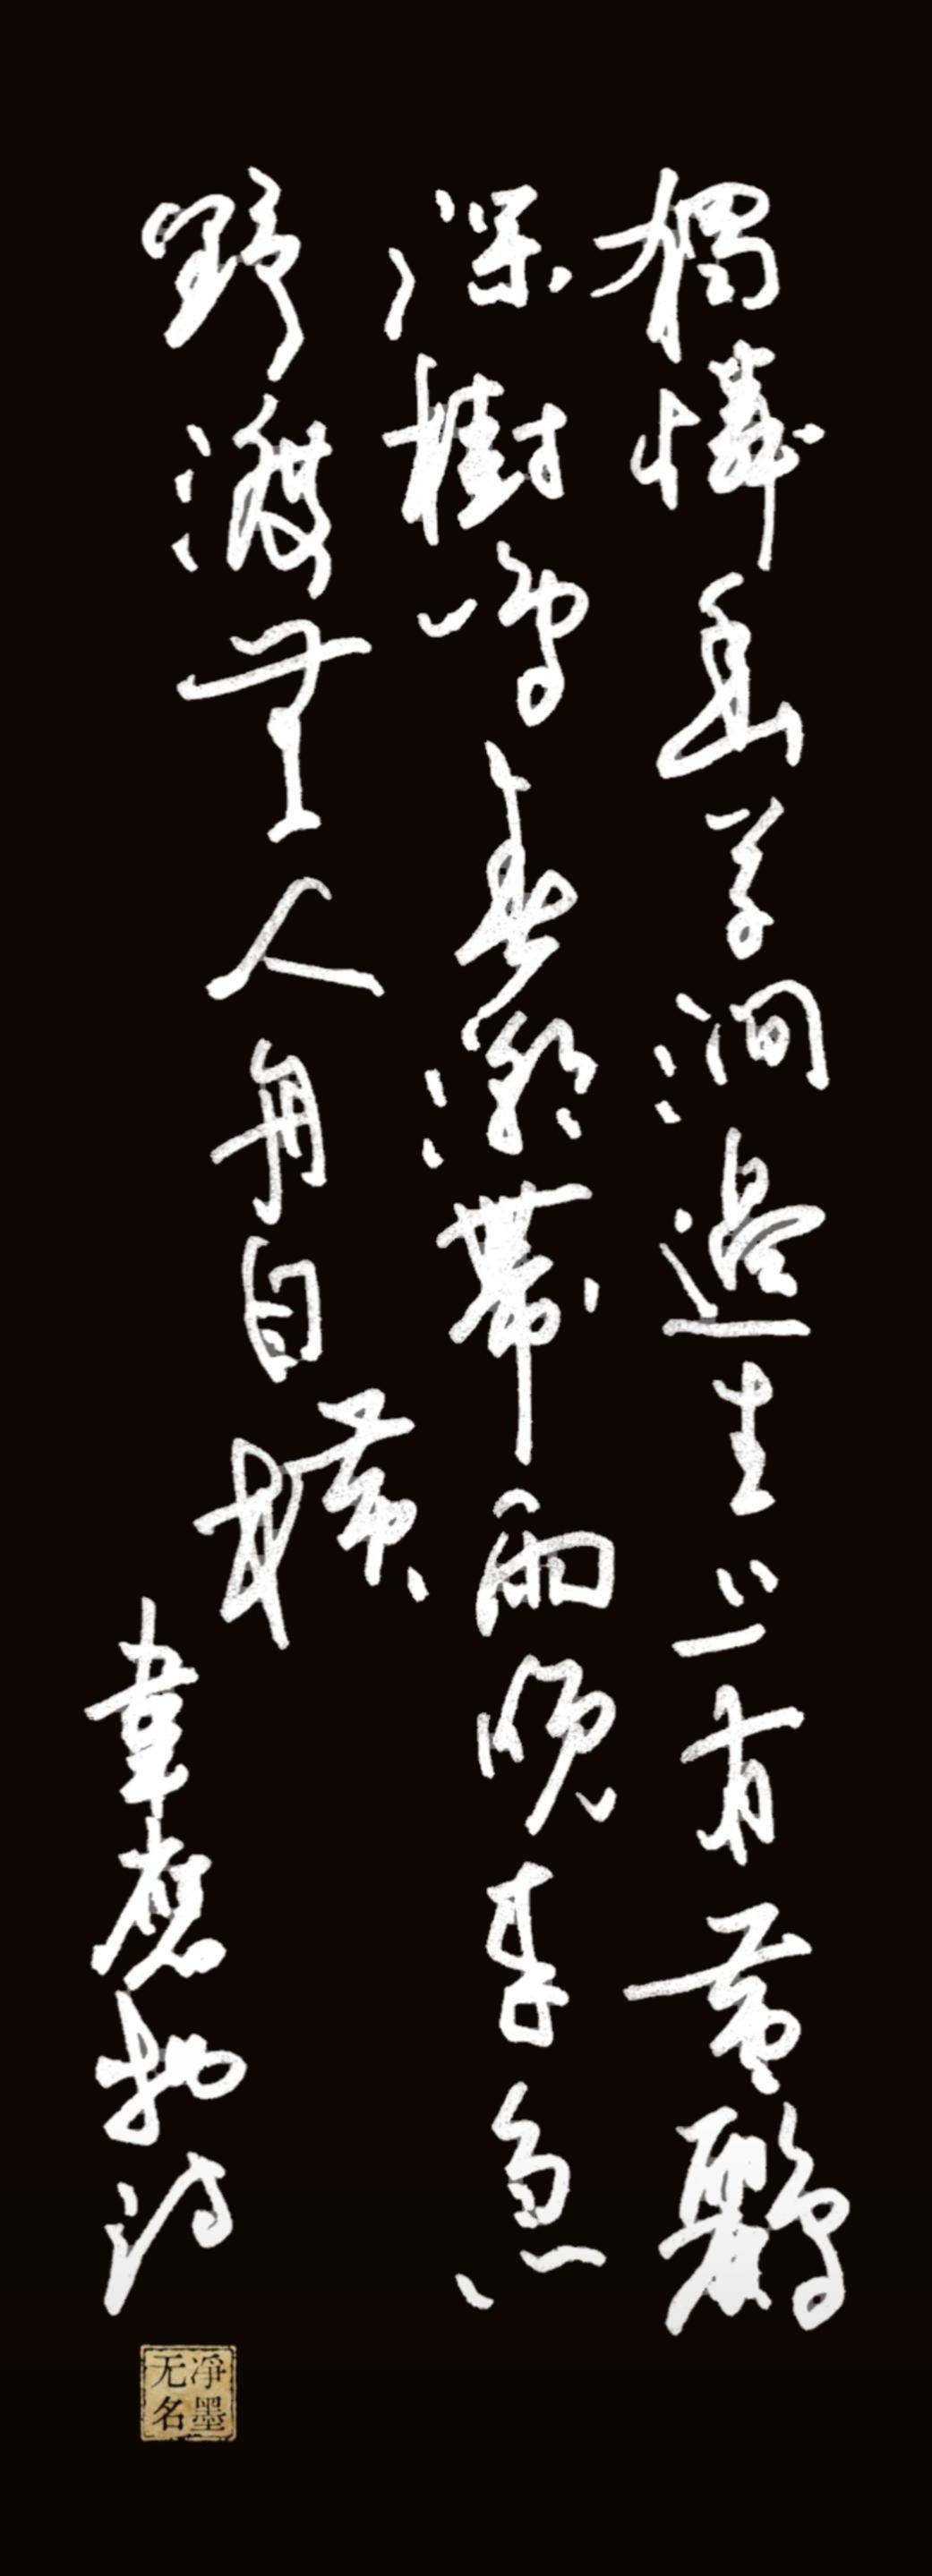 獨憐幽草澗邊生上有黃鸝
深樹鳴春潮帶雨晚來急
野渡無人舟自橫
韋應物詩
凈墨
无名